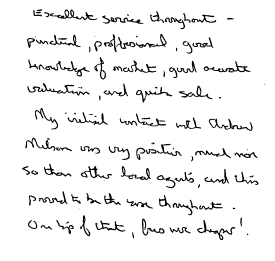 Excellent service throughout -
punctual, professional, good
knowledge of market, good accurate
valuation, and quick sale.
My initial contact with Andrew
Milsom was very positive, much more
so than other local agents, and this
proved to be the case throughout.
On top of that, fees were cheaper!